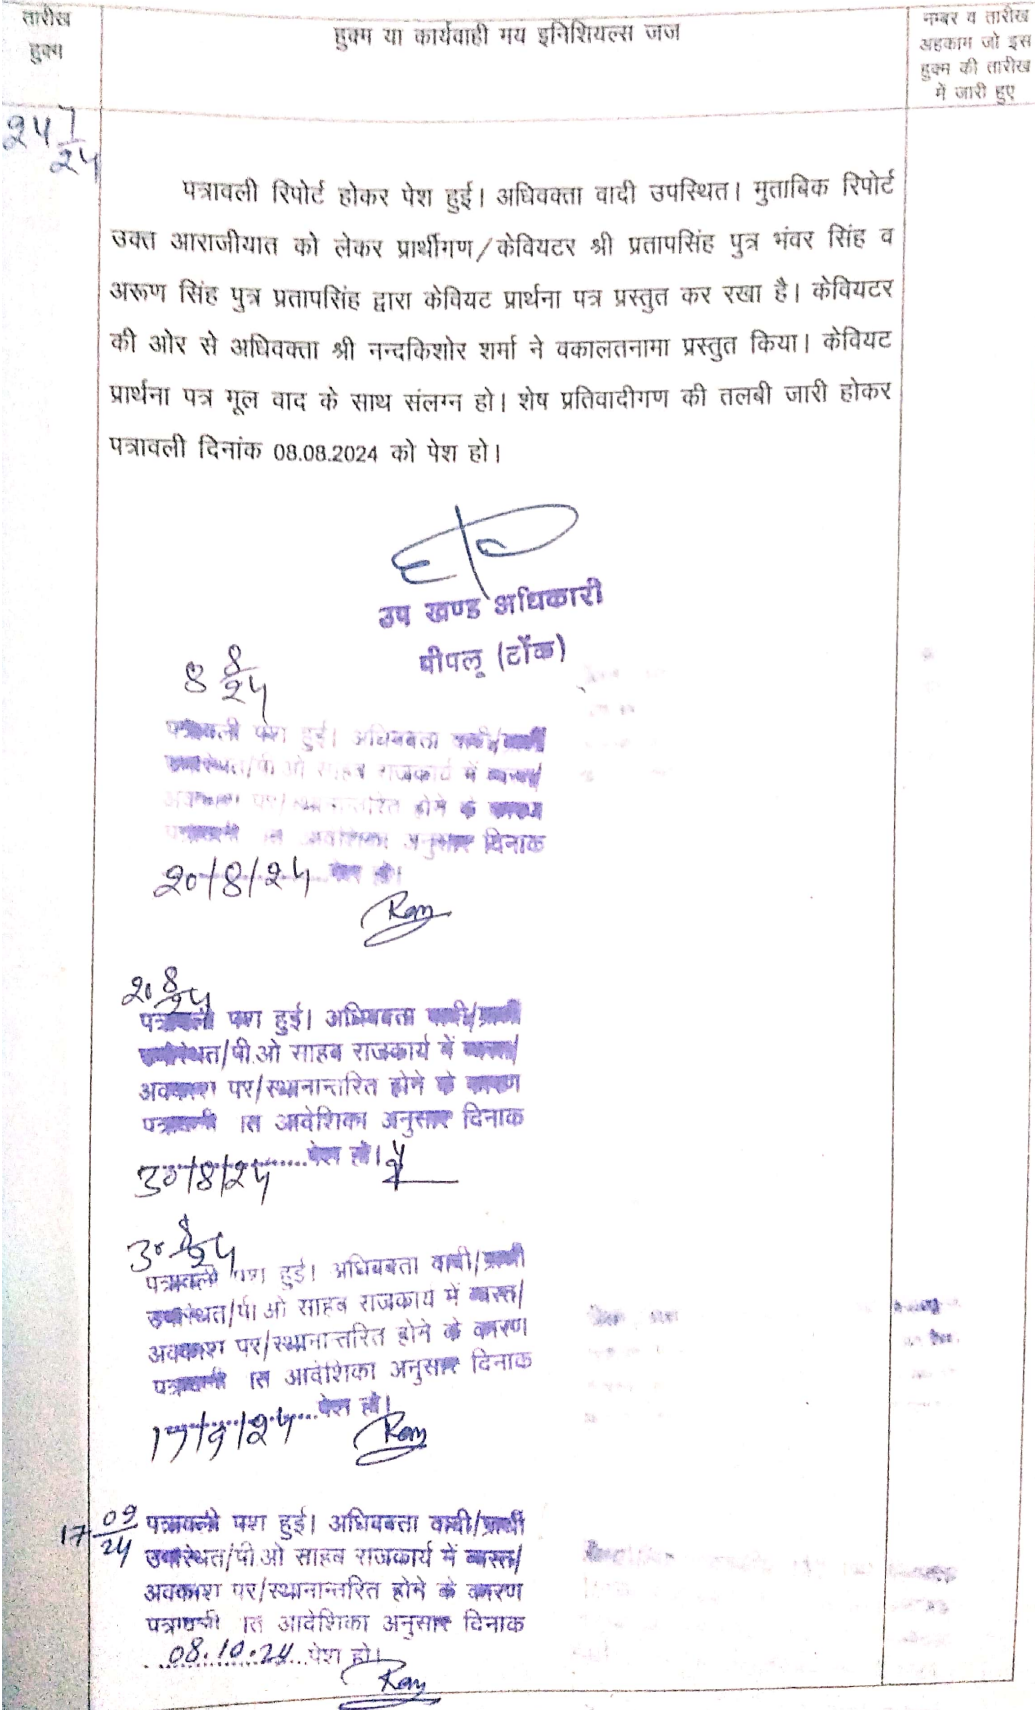 तारीख
हुक्म
हुक्म या कार्यवाही मय इनिशियल्स जज
नम्बर व तारीख
अहकाम जो इस
हुक्म की तारीख
में जारी हुए
24 7/24
पत्रावली रिपोर्ट होकर पेश हुई। अधिवक्ता वादी उपस्थित। मुताबिक रिपोर्ट
उक्त आराजीयात को लेकर प्रार्थीगण/केवियटर श्री प्रतापसिंह पुत्र भंवर सिंह व
अरूण सिंह पुत्र प्रतापसिंह द्वारा केवियट प्रार्थना पत्र प्रस्तुत कर रखा है। केवियटर
की ओर से अधिवक्ता श्री नन्दकिशोर शर्मा ने वकालतनामा प्रस्तुत किया। केवियट
प्रार्थना पत्र मूल वाद के साथ संलग्न हो। शेष प्रतिवादीगण की तलबी जारी होकर
पत्रावली दिनांक 08.08.2024 को पेश हो।
उप खण्ड अधिकारी
पीपलू (टोंक)
8 8/24
पत्रावली पेश हुई। अधिवक्ता वादी/प्रार्थी
उपस्थित/पी.ओ साहब राजकार्य में व्यस्त/
अवकाश पर/स्थानान्तरित होने के कारण
पत्रावली आवेशिका अनुसार दिनाक
20/8/24 पेश हो।
Ram
20 8/24
पत्रावली पेश हुई। अधिवक्ता वादी/प्रार्थी
उपस्थित/पी.ओ साहब राजकार्य में व्यस्त/
अवकाश पर/स्थानान्तरित होने के कारण
पत्रावली आवेशिका अनुसार दिनाक
30/8/24 पेश हो।
30 8/24
पत्रावली पेश हुई। अधिवक्ता वादी/प्रार्थी
उपस्थित/पी.ओ साहब राजकार्य में व्यस्त/
अवकाश पर/स्थानान्तरित होने के कारण
पत्रावली आवेशिका अनुसार दिनाक
17/9/24 पेश हो।
Ram
17 09/24
पत्रावली पेश हुई। अधिवक्ता वादी/प्रार्थी
उपस्थित/पी.ओ साहब राजकार्य में व्यस्त/
अवकाश पर/स्थानान्तरित होने के कारण
पत्रावली आदेशिका अनुसार दिनाक
08.10.24 पेश हो।
Ram